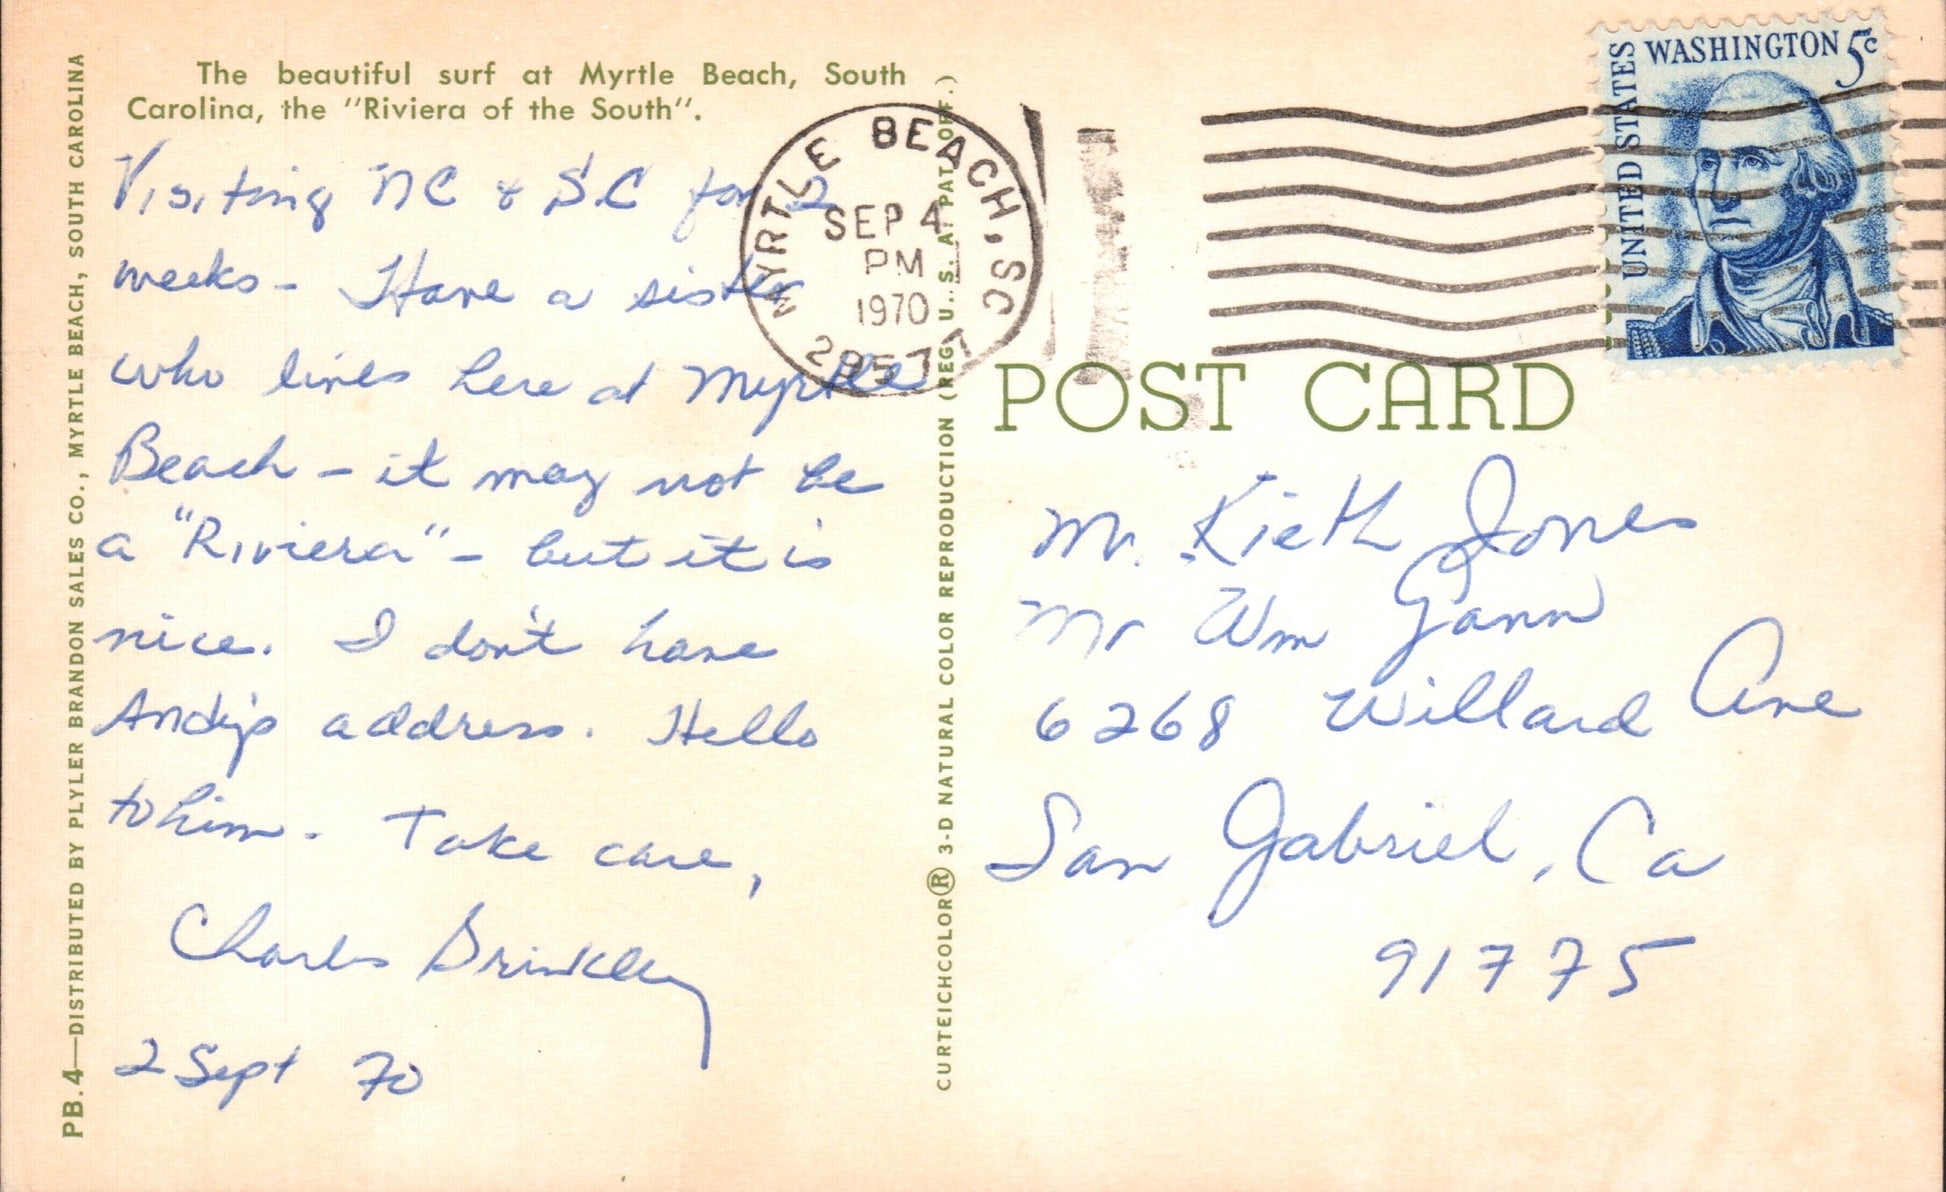 The beautiful surf at Myrtle Beach, South
Carolina, the "Riviera of the South".
Visiting NC & SC for 2
weeks - Have a sister
who lives here at Myrtle
Beach - it may not be
a "Riviera" - but it is
nice. I don't have
Andy's address. Hello
to him. Take care,
Charles Brinkley
2 Sept 70
PB.4—DISTRIBUTED BY PLYLER BRANDON SALES CO., MYRTLE BEACH, SOUTH CAROLINA
CURTEICHCOLOR® 3-D NATURAL COLOR REPRODUCTION (REG. U.S.A. PAT. OFF.)
MYRTLE BEACH, SC
SEP 4
PM
1970
29577
UNITED STATES
WASHINGTON 5c
POST CARD
Mr. Kieth Jones
Mr Wm Gann
6268 Willard Ave
San Gabriel, Ca
91775